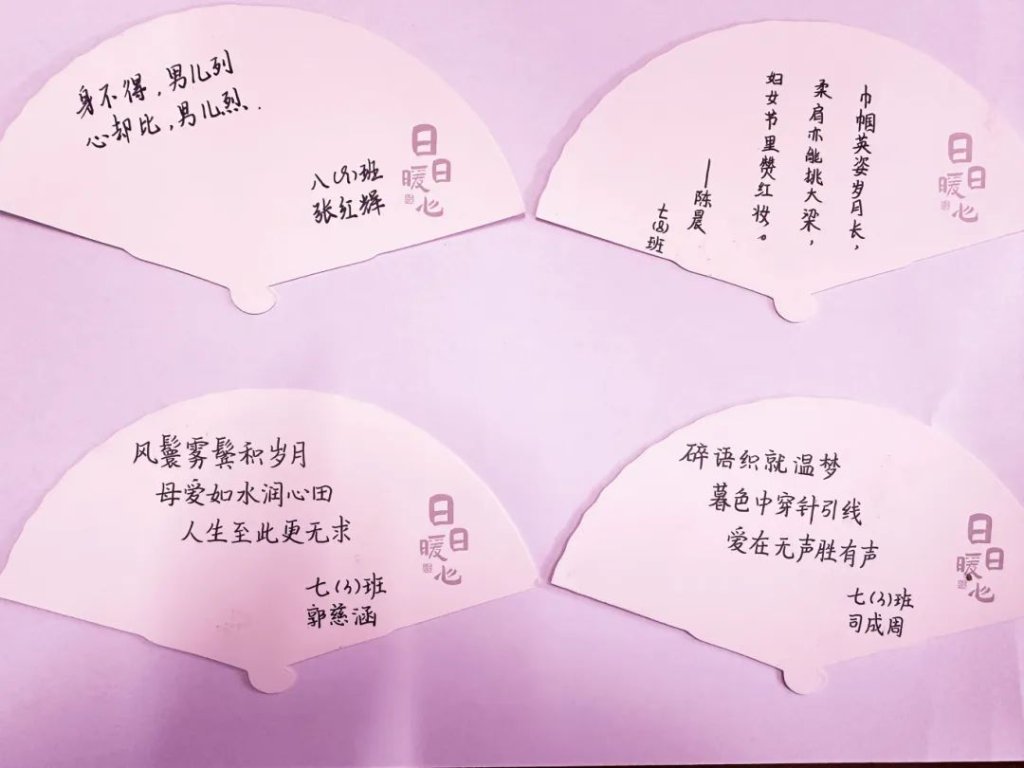 身不得，男儿列
心却比，男儿烈.
八(9)班
张红辉
日日暖心
巾帼英姿岁月长，
柔肩亦能挑大梁，
妇女节里赞红妆。
——陈晨
七(8)班
日日暖心
风鬟雾鬓积岁月
母爱如水润心田
人生至此更无求
七(3)班
郭慈涵
日日暖心
碎语织就温梦
暮色中穿针引线
爱在无声胜有声
七(3)班
司成周
日日暖心